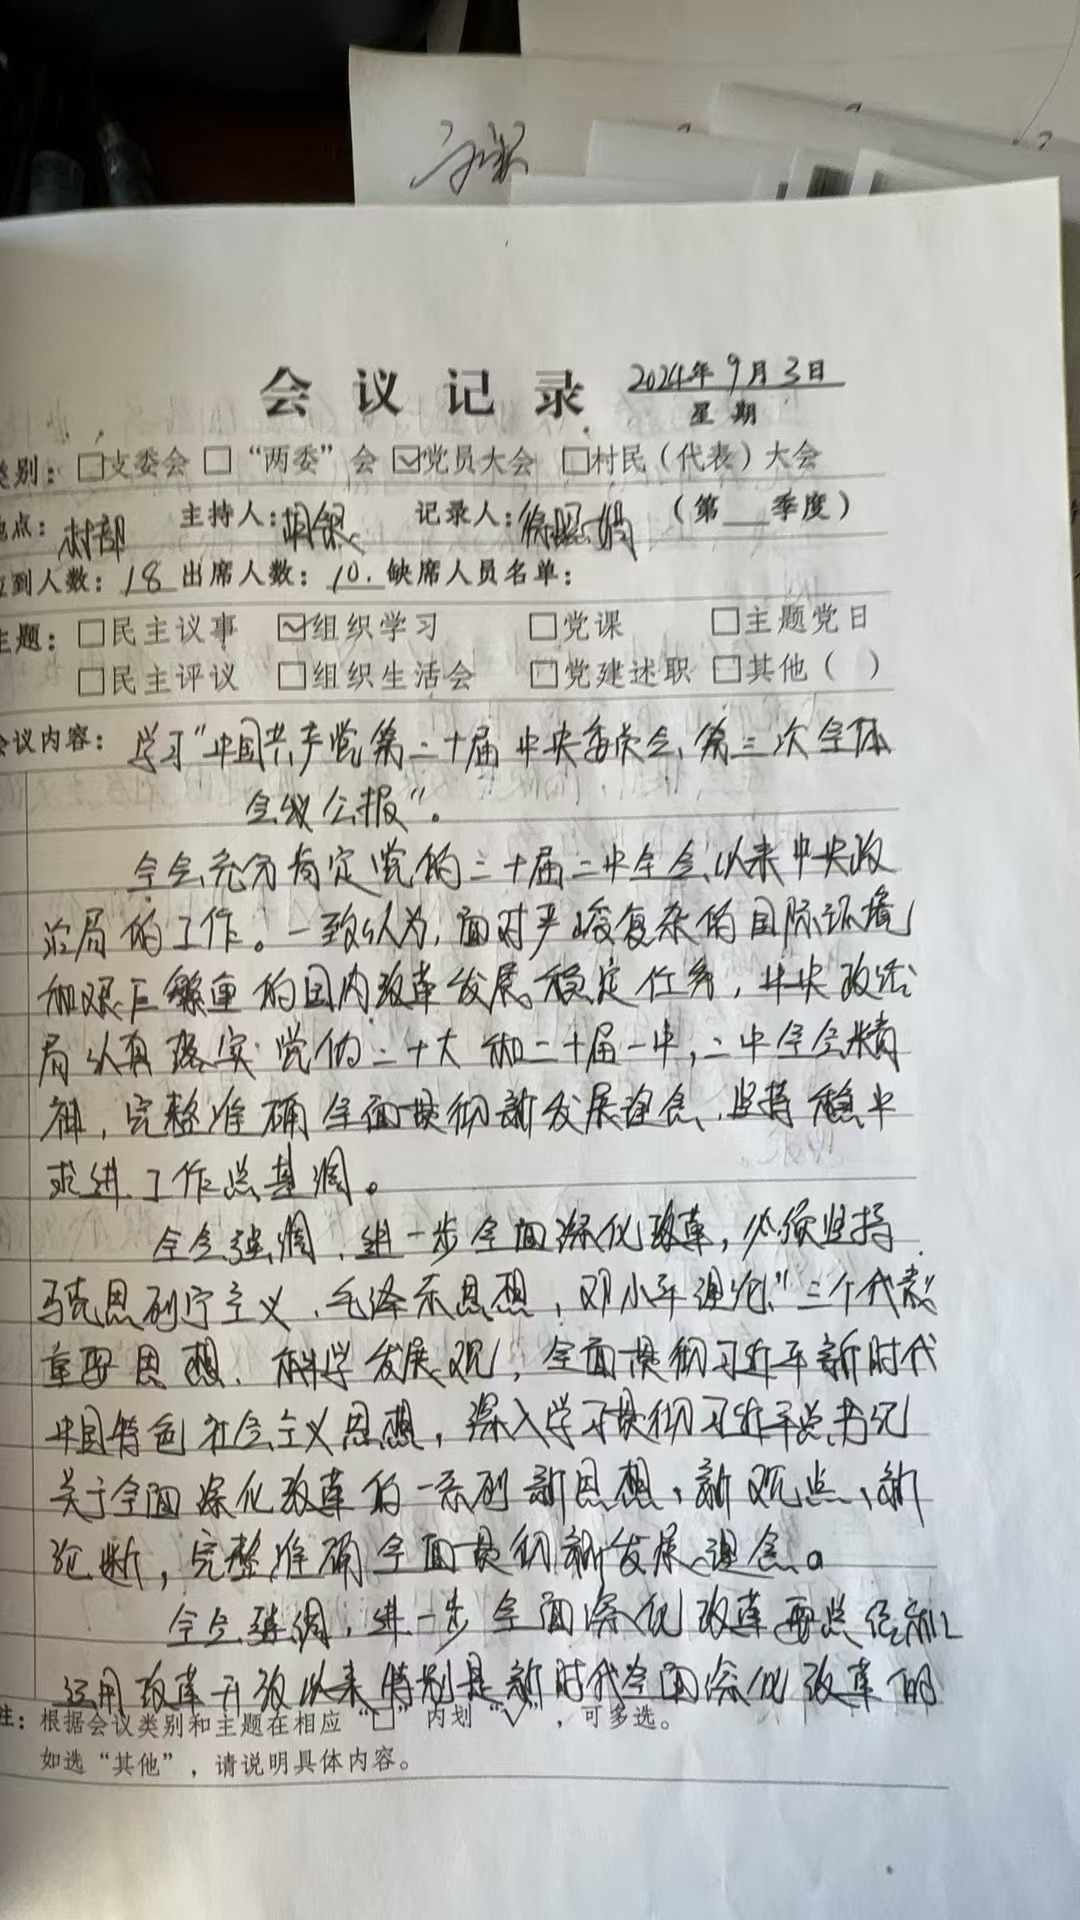 会议记录 2024年9月3日
星期
类别：□支委会 □“两委”会 ☑党员大会 □村民（代表）大会
地点：村部 主持人：胡银 记录人：徐照娟 （第 季度）
应到人数：18 出席人数：10. 缺席人员名单：
主题：□民主议事 ☑组织学习 □党课 □主题党日
□民主评议 □组织生活会 □党建述职 □其他（ ）
会议内容：学习“中国共产党第二十届中央委员会第三次全体
会议公报”。
全会充分肯定党的二十届二中全会以来中央政
治局的工作。一致认为，面对严峻复杂的国际环境
和艰巨繁重的国内改革发展稳定任务，中央政治
局认真落实党的二十大和二十届一中，二中全会精
神，完整准确全面贯彻新发展理念、坚持稳中
求进工作总基调。
全会强调，进一步全面深化改革，必须坚持
马克思列宁主义、毛泽东思想，邓小平理论、“三个代表”
重要思想、科学发展观，全面贯彻习近平新时代
中国特色社会主义思想，深入学习贯彻习近平总书记
关于全面深化改革的一系列新思想，新观点、新
论断，完整准确全面贯彻新发展理念。
全会强调，进一步全面深化改革要总结和
运用改革开放以来特别是新时代全面深化改革的
注：根据会议类别和主题在相应“□”内划“√”，可多选。
如选“其他”，请说明具体内容。